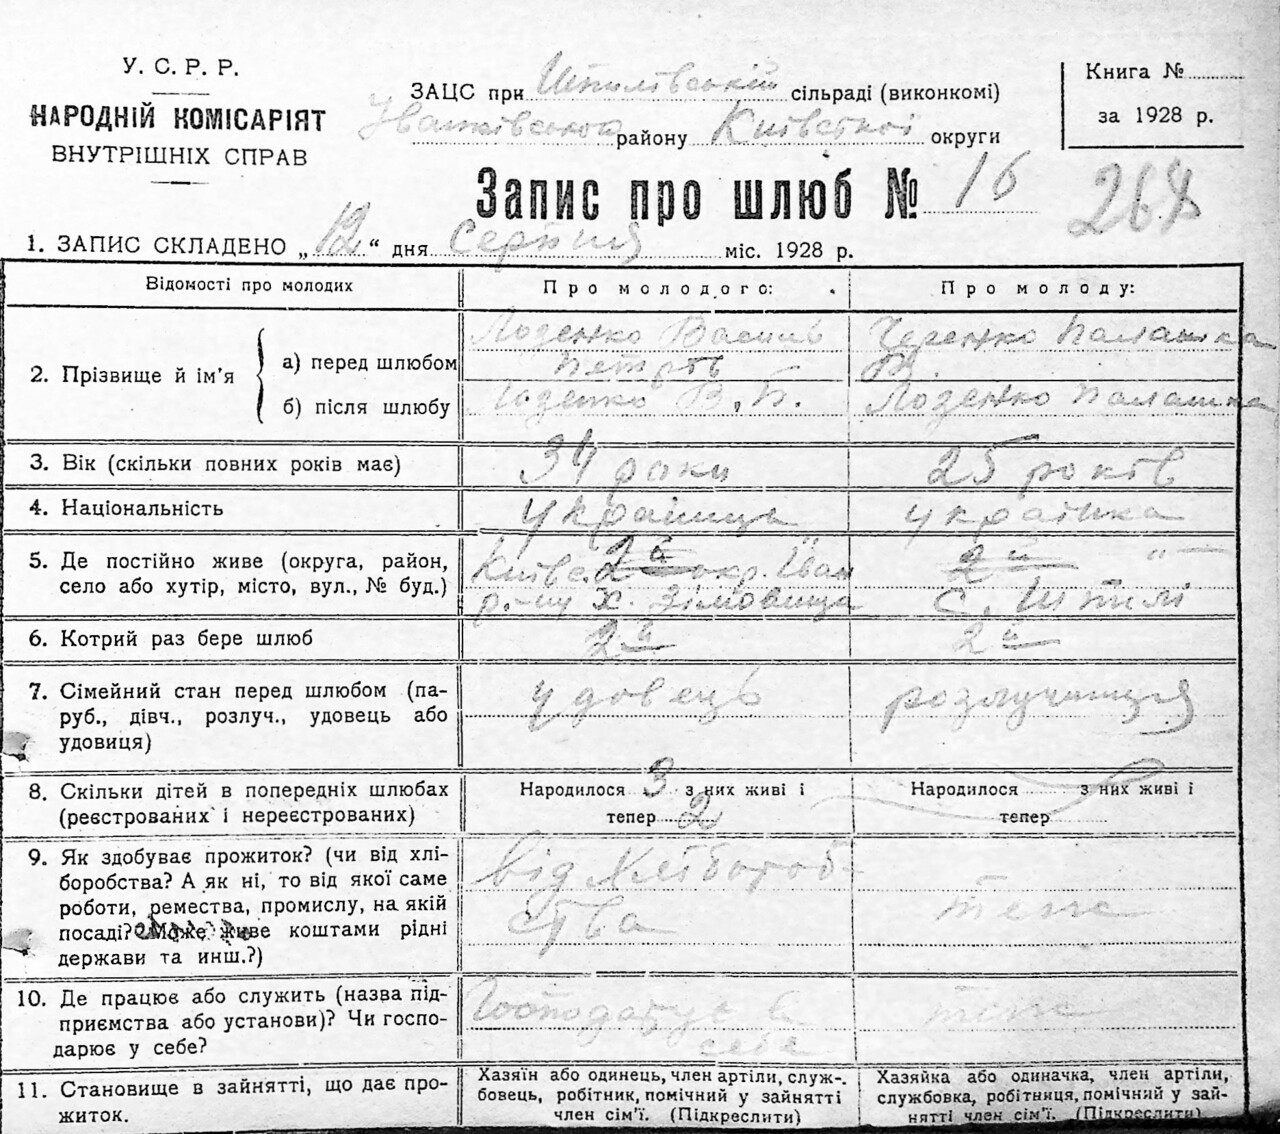 У. С. Р. Р.
НАРОДНІЙ КОМІСАРІЯТ
ВНУТРІШНІХ СПРАВ
ЗАЦС при Шпилівській сільраді (виконкомі)
Іванківського району Київської округи
Книга №
за 1928 р.
Запис про шлюб № 16
268
1. ЗАПИС СКЛАДЕНО „12“ дня Серпня міс. 1928 р.
Відомості про молодих
Про молодого:
Про молоду:
2. Прізвище й ім’я
а) перед шлюбом
Лозенко Василь
Петров
Черенко Палашка
б) після шлюбу
Лозенко В. П.
Лозенко Палашка
3. Вік (скільки повних років має)
34 роки
25 років
4. Національність
українець
українка
5. Де постійно живе (округа, район,
село або хутір, місто, вул., № буд.)
Київс. 2а окр. Іван
р-ну х. Зімовища
2й „ —
с. Шпилі
6. Котрий раз бере шлюб
2й
2й
7. Сімейний стан перед шлюбом (па-
руб., дівч., розлуч., удовець або
удовиця)
удовець
розлучниця
8. Скільки дітей в попередніх шлюбах
(реєстрованих і нереєстрованих)
Народилося 3 з них живі і
тепер 2
Народилося з них живі і
тепер
9. Як здобуває прожиток? (чи від хлі-
боробства? А як ні, то від якої саме
роботи, ремества, промислу, на якій
посаді? Може живе коштами рідні
держави та инш.?)
від хлібороб-
ства
теж
10. Де працює або служить (назва під-
приємства або установи)? Чи госпо-
дарює у себе?
Господарує в
себе
теж
11. Становище в зайнятті, що дає про-
житок.
Хазяїн або одинець, член артіли, служ-
бовець, робітник, помічний у зайнятті
член сім’ї. (Підкреслити)
Хазяйка або одиначка, член артіли,
службовка, робітниця, помічний у зай-
нятті член сім’ї. (Підкреслити)